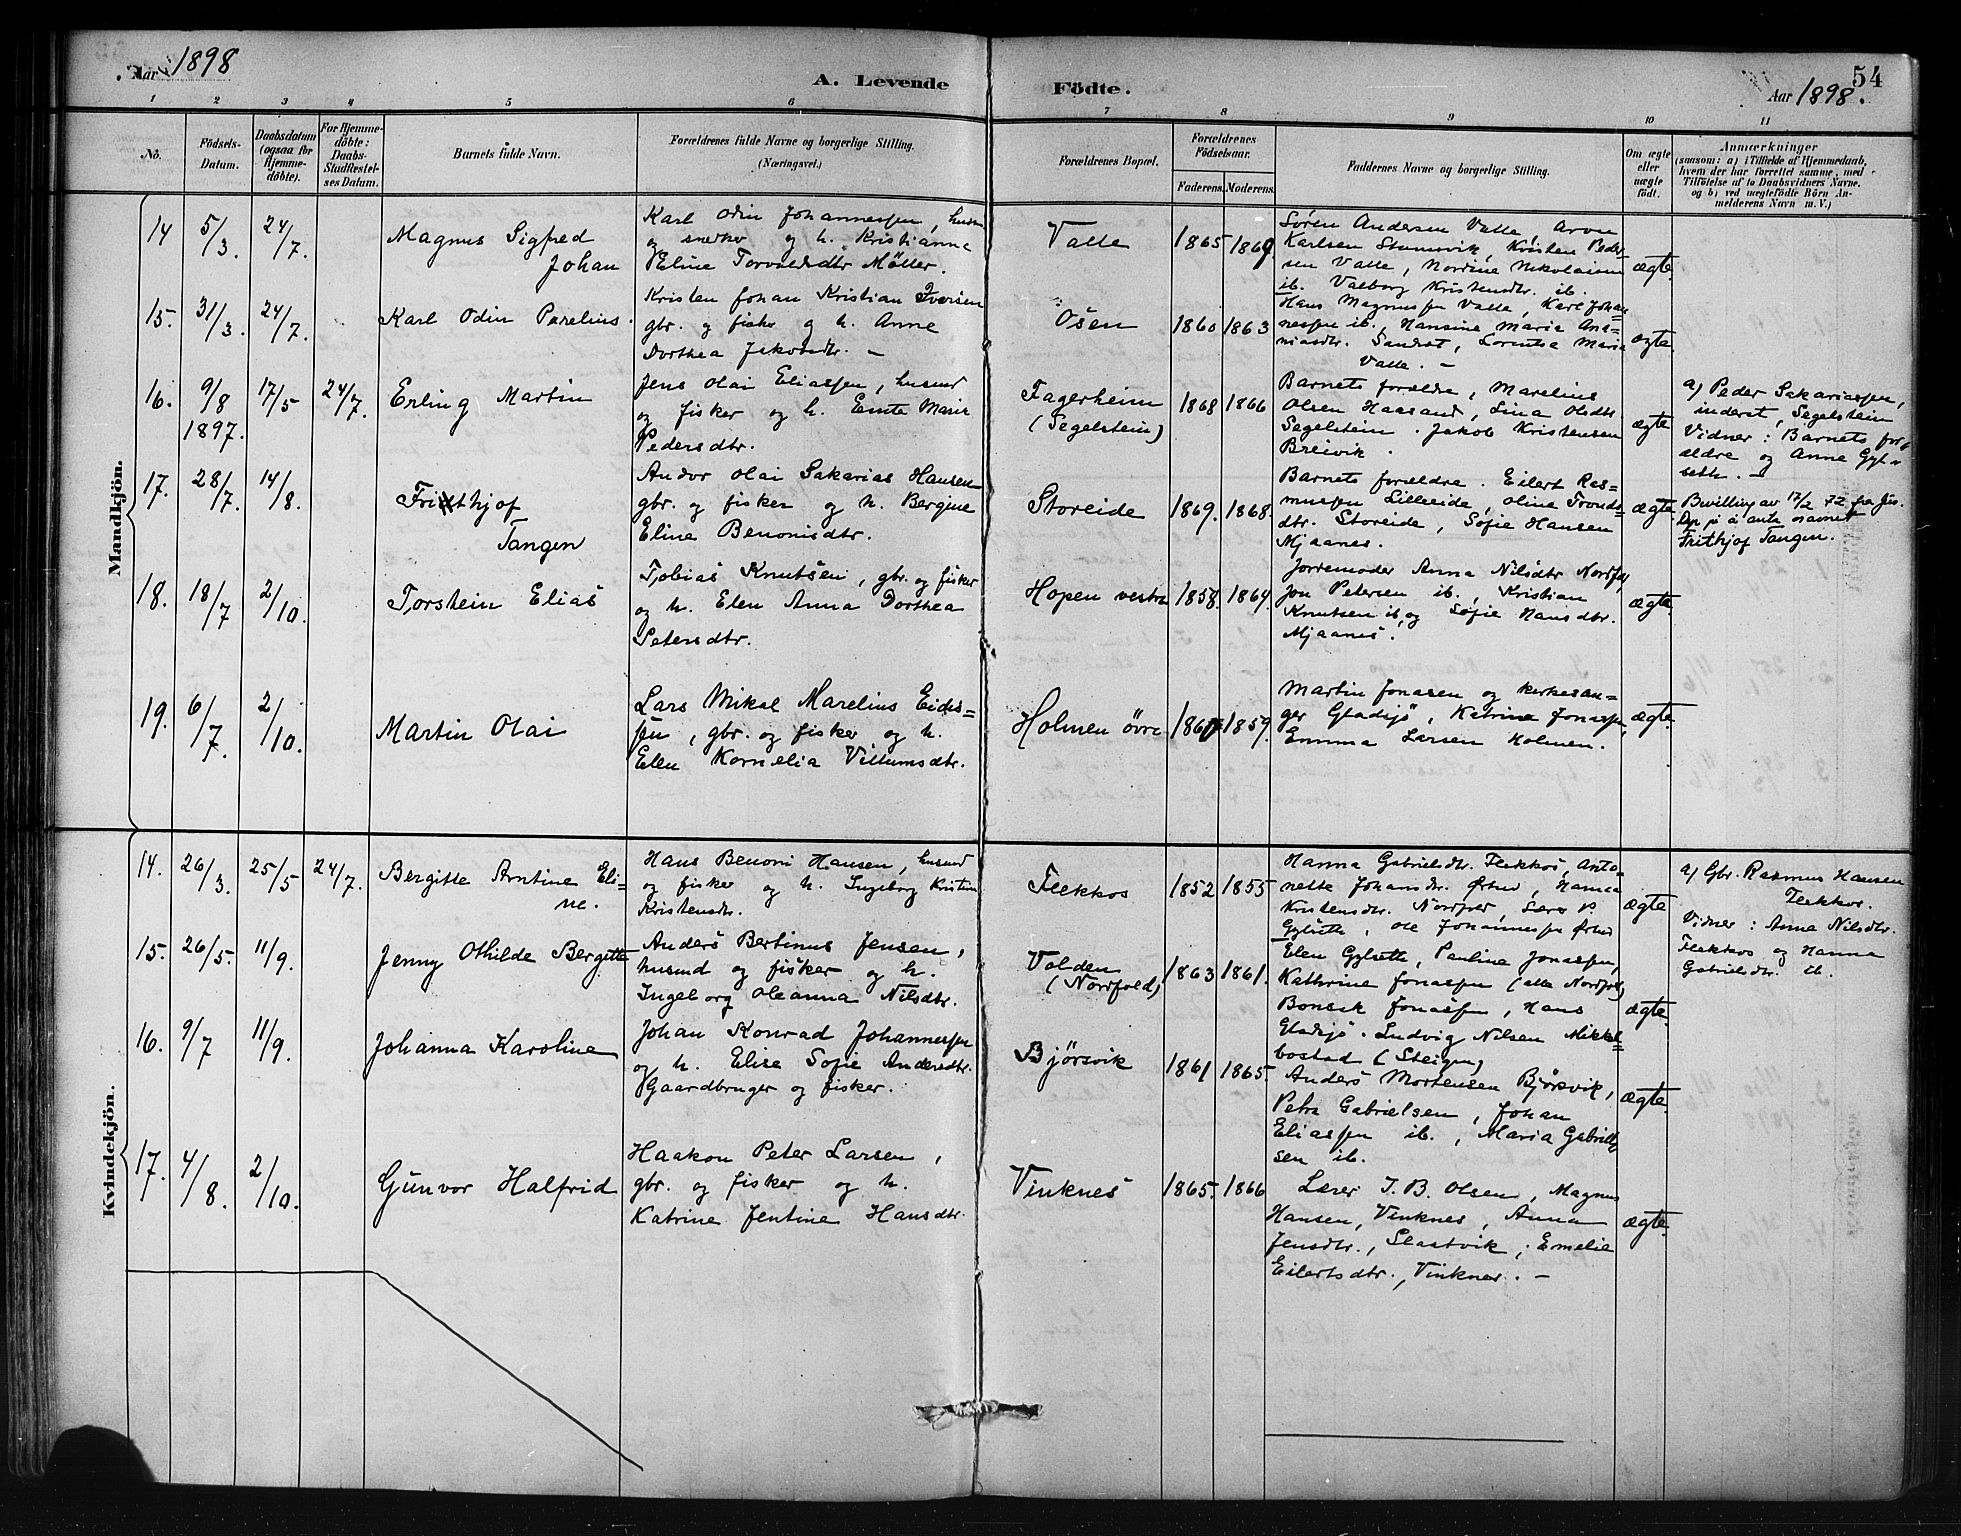 Aar 1898
A. Levende
Födte.
Aar 1898.
54
1 2 3 4 5 6 7 8 9 10 11
No.
Födsels-
Datum.
Daabsdatum
(ogsaa for
Hjemme-
döbte).
For Hjemme-
döbte:
Daabs-
Stadfæstel-
ses Datum.
Barnets fulde Navn.
Forældrenes fulde Navne og borgerlige Stilling.
(Næringsvei.)
Forældrenes Bopæl.
Forældrenes
Födselsaar.
Faderens. Moderens.
Faddernes Navne og borgerlige Stilling.
Om ægte
eller
uægte
födt.
Anmærkninger
(saasom: a) i Tilfælde af Hjemmedaab,
hvem der har forrettet samme, med
Tilföielse af to Daabsvidners Navne,
og b) ved uægtefödte Börn An-
melderens Navn m. V.)
Mandkjön.
14 5/3. 24/7.
Magnus Sigfred
Johan
Karl Odin Johannessen, husm
og snedker og h. Kristianna
Eline Torvaldsdtr Möller.
Valle 1865 1869
Sören Andersen Valle, Arvn
Karlsen Stamsvik, Kristen Peder
sen Valle, Nordine Nikolaisen
ib. Valborg Kristensdtr. ib.
ægte.
15. 31/3. 24/7.
Karl Odin Parelius.
Kristen Johan Kristian Iversen
gbr. og fisker og h. Anne
Dorthea Jakobsdtr. –
Osen 1860 1863
Hans Magnussen Valle, Karl Johan
nessen ib., Hansine Maria Ana=
niasdtr. Sandset, Lorentsa Maria
Valle. –
ægte.
16. 9/8 1897. 17/5 24/7.
Erling Martin
Jens Olai Eliassen, husmd
og fisker og h. Ernte Marie
Pedersdtr.
Fagerheim
(Segelstein)
1868 1866
Barnets forældre, Marelius
Olsen Haasand, Lina Olsdtr
Segelstein. Jakob Kristensen
Breivik.
ægte
a) Peder Sakariassen,
inderst, Segelstein
Vidner: Barnets for=
ældre og Anne Gyl=
seth. –
17. 28/7. 14/8.
Frithjof
Tangen
Andor Olai Sakarias Hansen
gbr. og fisker og h. Bergine
Eline Benonisdtr.
Storeide 1869. 1868.
Barnets forældre. Eilert Ras=
mussen Lilleeide, Olina Tronds=
dtr. Storeide, Sofie Hansen
Mjaanes.
ægte.
Bevilling av 17/2 72 fra Jus.
Dep. på å anta navnet
Frithjof Tangen.
18. 18/7 2/10.
Torstein Elias
Tobias Knutsen, gbr. og fisker
og h. Elen Anna Dorthea
Petersdtr.
Hopen vestre 1858. 1864.
Jorremoder Anna Nilsdtr Nordfold,
Jon Petersen ib., Kristian
Knutsen ib, og Sofie Hansdtr.
Mjaanes.
ægte.
19. 6/7 2/10.
Martin Olai
Lars Mikal Marelius Eids=
sen, gbr. og fisker og h.
Elen Kornelia Villumsdtr.
Holmen övre 1859.
Martin Jonasen og kirkesan=
ger Gladsjö, Katrine Jonassen,
Emma Larsen Holmen.
ægte.
Kvindekjön.
14. 26/3. 25/5 24/7.
Bergitte Arntine Eli=
ne.
Hans Benoni Hansen, husmd
og fisker og h. Ingeborg Kristine
Kristensdtr.
Flekkos 1852 1855
Hanna Gabrielsdtr. Flekkos, Anto=
nette Johansdtr. Ørbud, Hanna
Kristensdtr. Nordfold, Lærer P.
Gylseth, Ole Johannessen Ørbud
ægte
a) Gbr. Rasmus Hansen
Flekkos.
Vidner: Anne Nilsdtr.
Flekkos og Hanna
Gabrielsdtr. ib.
15. 26/5. 11/9.
Jenny Othilde Bergitte
Anders Bertinus Jensen,
husmd og fisker og h.
Ingeborg Oleanna Nilsdtr.
Volden
(Nordfold)
1863 1861.
Elen Gylseth, Pauline Jonassen,
Kathrine Jonassen (alle Nordfold)
Bonsak Jonassen, Hans
Gladsjö. Ludvig Nilsen Mikkel=
bostad (Steigen)
ægte.
16. 9/7 11/9.
Johanna Karoline
Johan Konrad Johannessen
og h. Elise Sofie Andersdtr.
Gaardbruger og fisker.
Bjørsvik 1861 1865.
Anders Mortensen Bjørsvik,
Petra Gabrielsen, Johan
Eliassen ib., Maria Gabriel=
sen ib.
ægte.
17. 4/8. 2/10.
Gunvor Halfrid
Haakon Peter Larsen,
gbr. og fisker og h.
Katrine Jentine Hansdtr.
Vinknes 1865. 1866
Lærer J. B. Olsen, Magnus
Hansen, Vinknes, Anna
Jensdtr., Slaatvik, Emelie
Eilertsdtr., Vinknes. –
ægte.